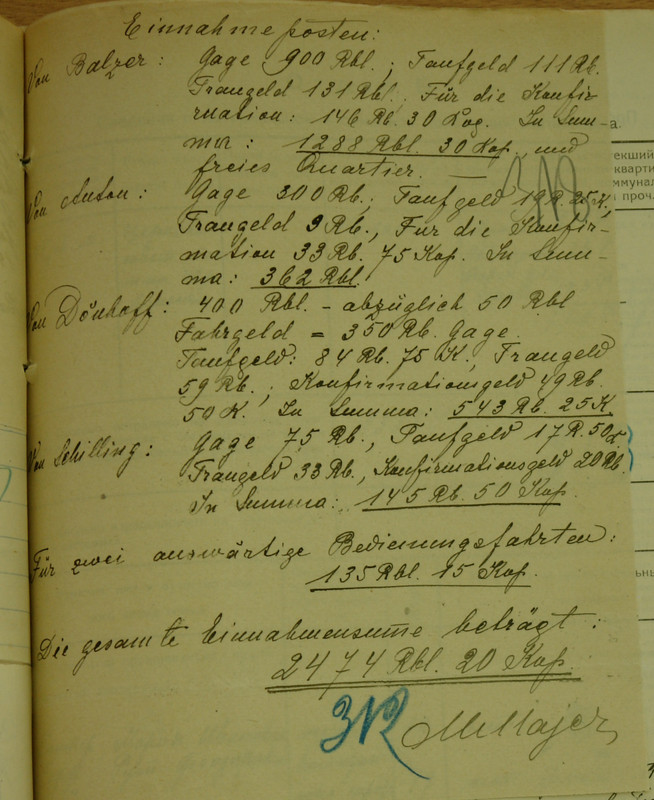 Einnahmeposten:
Von Balzer: Gage 900 Rbl.; Taufgeld 111 Rb.
Traugeld 131 Rbl. Für die Konfir-
mation: 146 Rb. 30 Kop. In Sum-
ma: 1288 Rbl. 30 Kop. und
freies Quartier. —
Von Anton: Gage 300 Rb.; Taufgeld 19 R. 25 K.,
Traugeld 9 Rb., Für die Konfir-
mation 33 Rb. 75 Kop. In Sum-
ma: 362 Rbl.
Von Dönhoff: 400 Rbl. - abzüglich 50 Rbl
Fahrgeld = 350 Rb. Gage.
Taufgeld: 84 Rb. 75 K., Traugeld
59 Rb.; Konfirmationsgeld 49 Rb.
50 K. In Summa: 543 Rb. 25 K.
Von Schilling: Gage 75 Rb., Taufgeld 17 R. 50 K
Traugeld 33 Rb., Konfirmationsgeld 20 Rb.
In Summa: 145 Rb. 50 Kop.
Für zwei auswärtige Bedienungsfahrten:
135 Rbl. 15 Kop.
Die gesamte Einnahmensume beträgt:
2474 Rbl. 20 Kop.